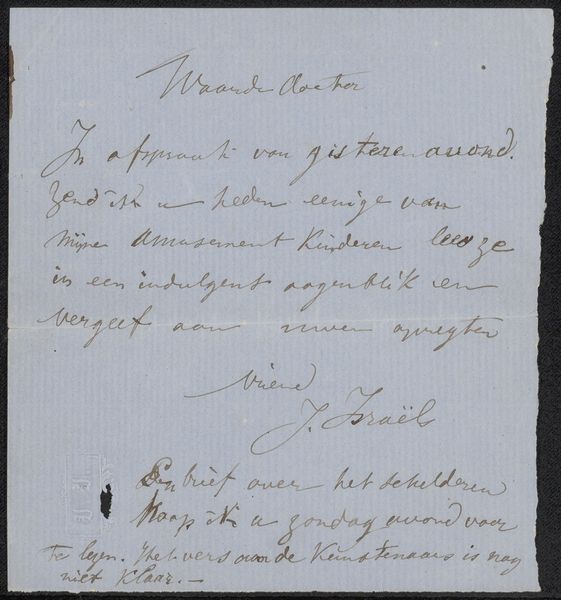 Waarde doctor
In afspraak van gisteren avond.
Zend ik u heden eenige van
mijne amusement kinderen lees ze
in een indulgent oogenblik en
vergeef aan uwen opregten
vriend
J. Israëls
Een brief over het schilderen
Hoop ik u zondag avond voor
te lezen. Het vers aan de Kunstenaars is nog
niet klaar.—